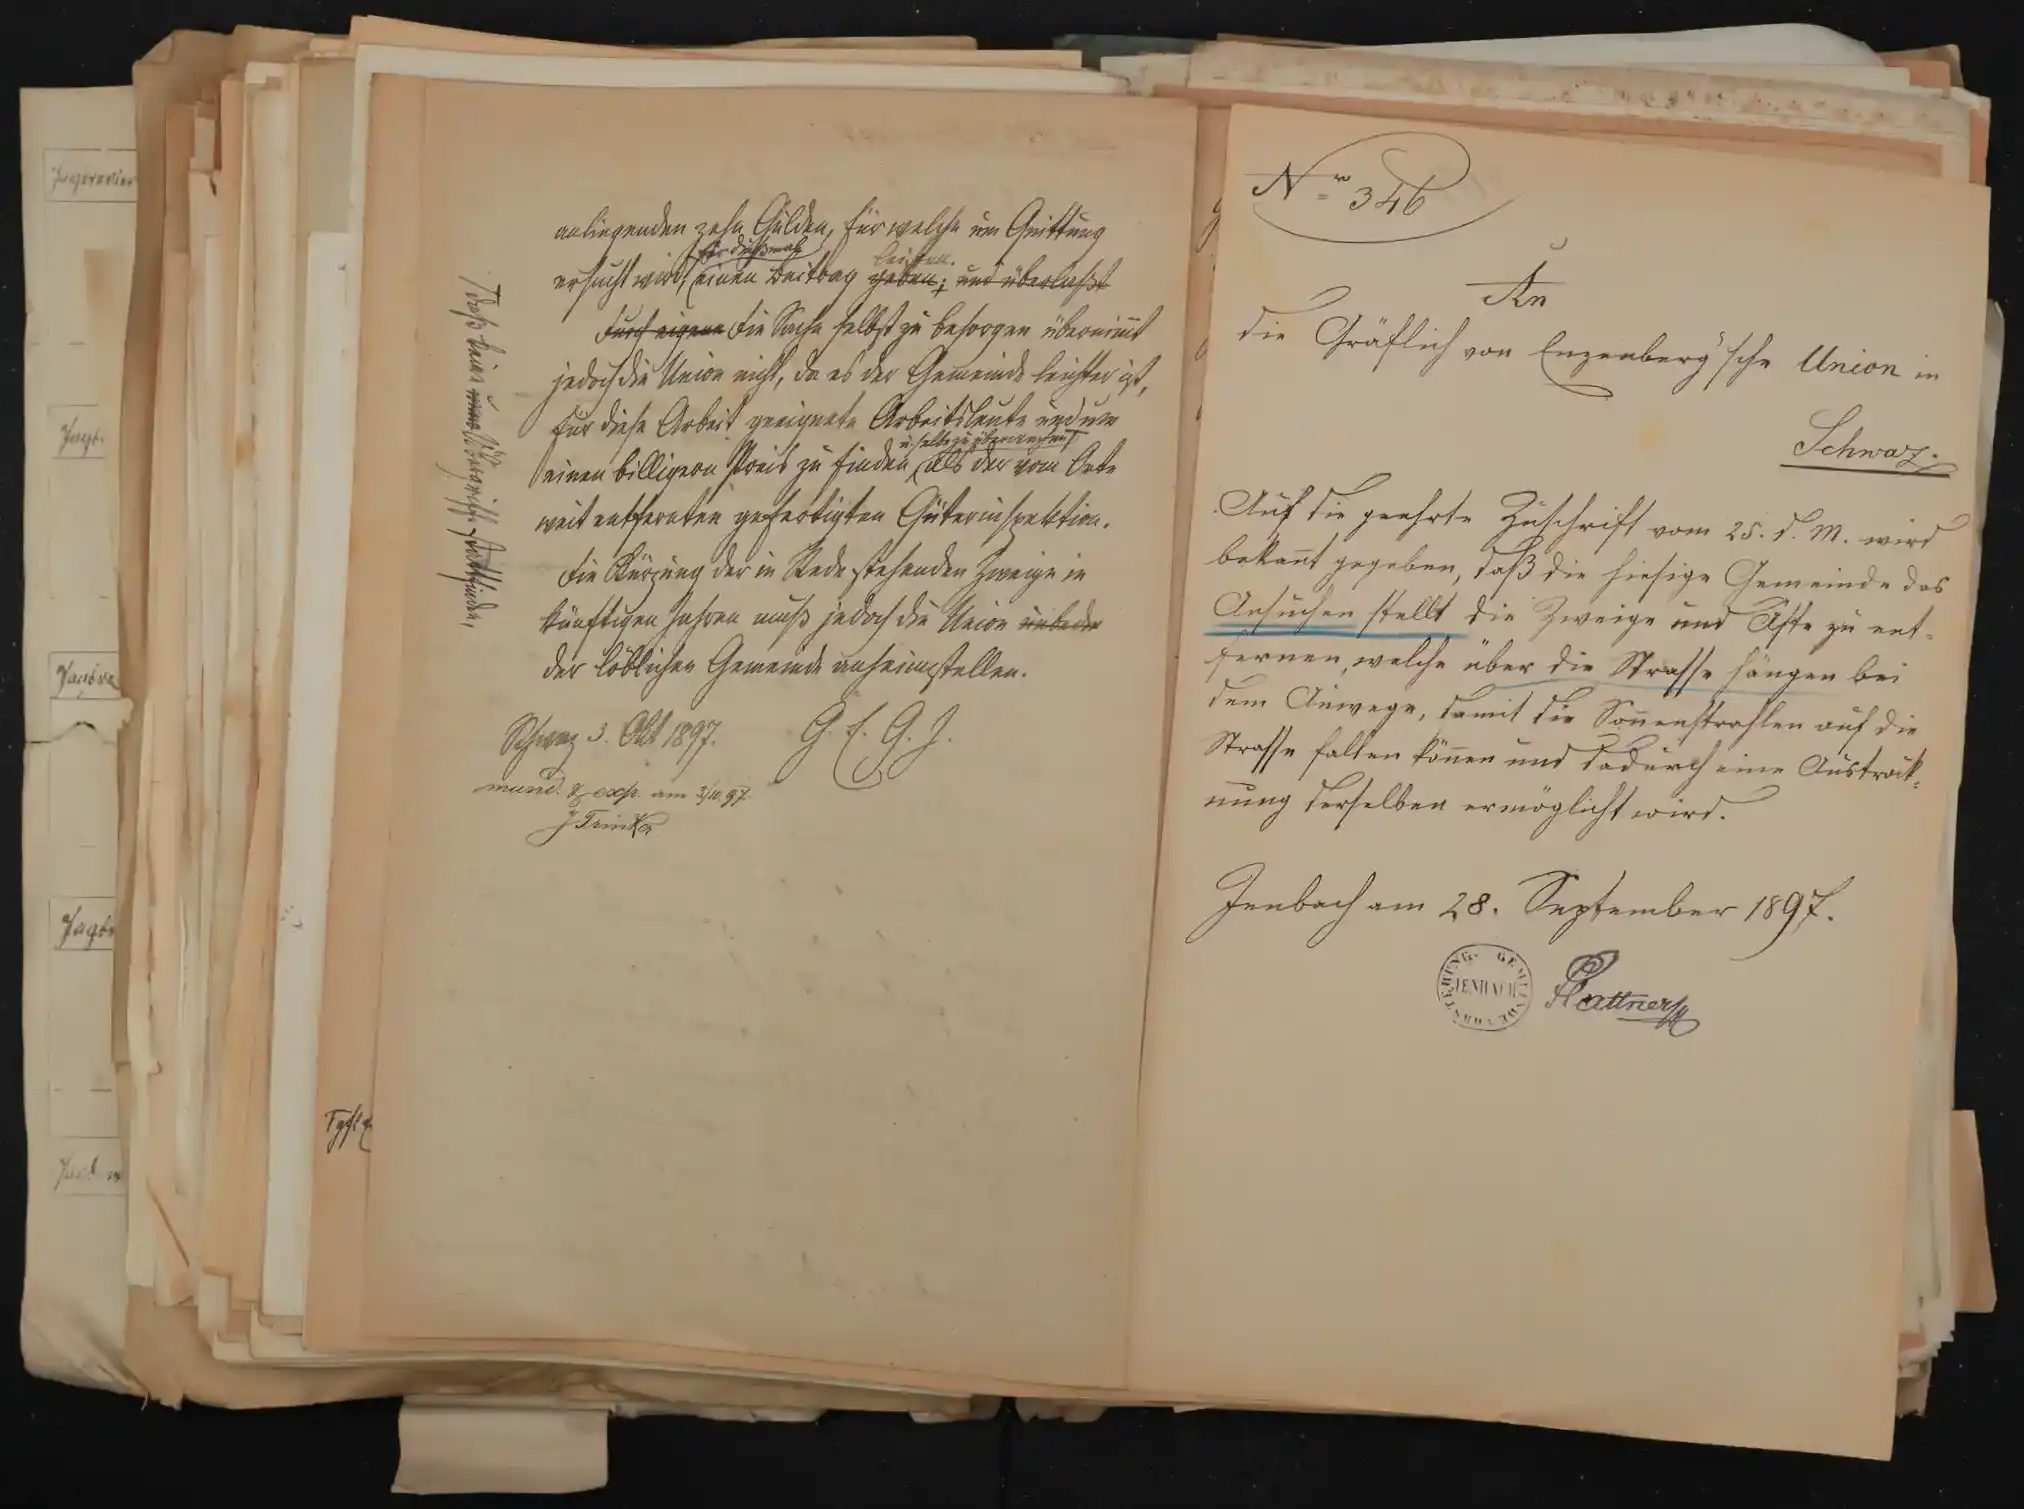 anliegenden zehn Gulden, für welche um Quittung
für dießmal leisten.
ersucht wird, einen Beitrag geben; und überlaßt
durch eigene die Sache selbst zu besorgen übernimmt
jedoch die Union nicht, da es der Gemeinde leichter ist,
für diese Arbeit geeignete Arbeitsleute und um
u. selbe zu überwachen
einen billigeren Preis zu finden, als der vom Orte
weit entfernten gefertigten Güterinspektion.
Die Kürzung der in Rede stehenden Zweige in
künftigen Jahren muß jedoch die Union
der löblichen Gemeinde anheimstellen.
Schwaz 3. Okt 1897. G. E. G. J.
mund. & exp. am 3/10 97.
J Trinker
daß keine stattfinden,
Nr 346
An
die Gräflich von Enzenberg'sche Union in
Schwaz.
Auf die geehrte Zuschrift vom 25. d. M. wird
bekannt gegeben, daß die hiesige Gemeinde das
Ansuchen stellt die Zweige und Äste zu ent-
fernen, welche über die Strasse hängen bei
dem Auwege, damit die Sonnenstrahlen auf die
Strasse fallen können und dadurch eine Austrock-
nung derselben ermöglicht wird.
Jenbach am 28. September 1897.
GEMEINDE VORSTEHUNG
JENBACH
Plattner
Jagdrevier
Tgfl